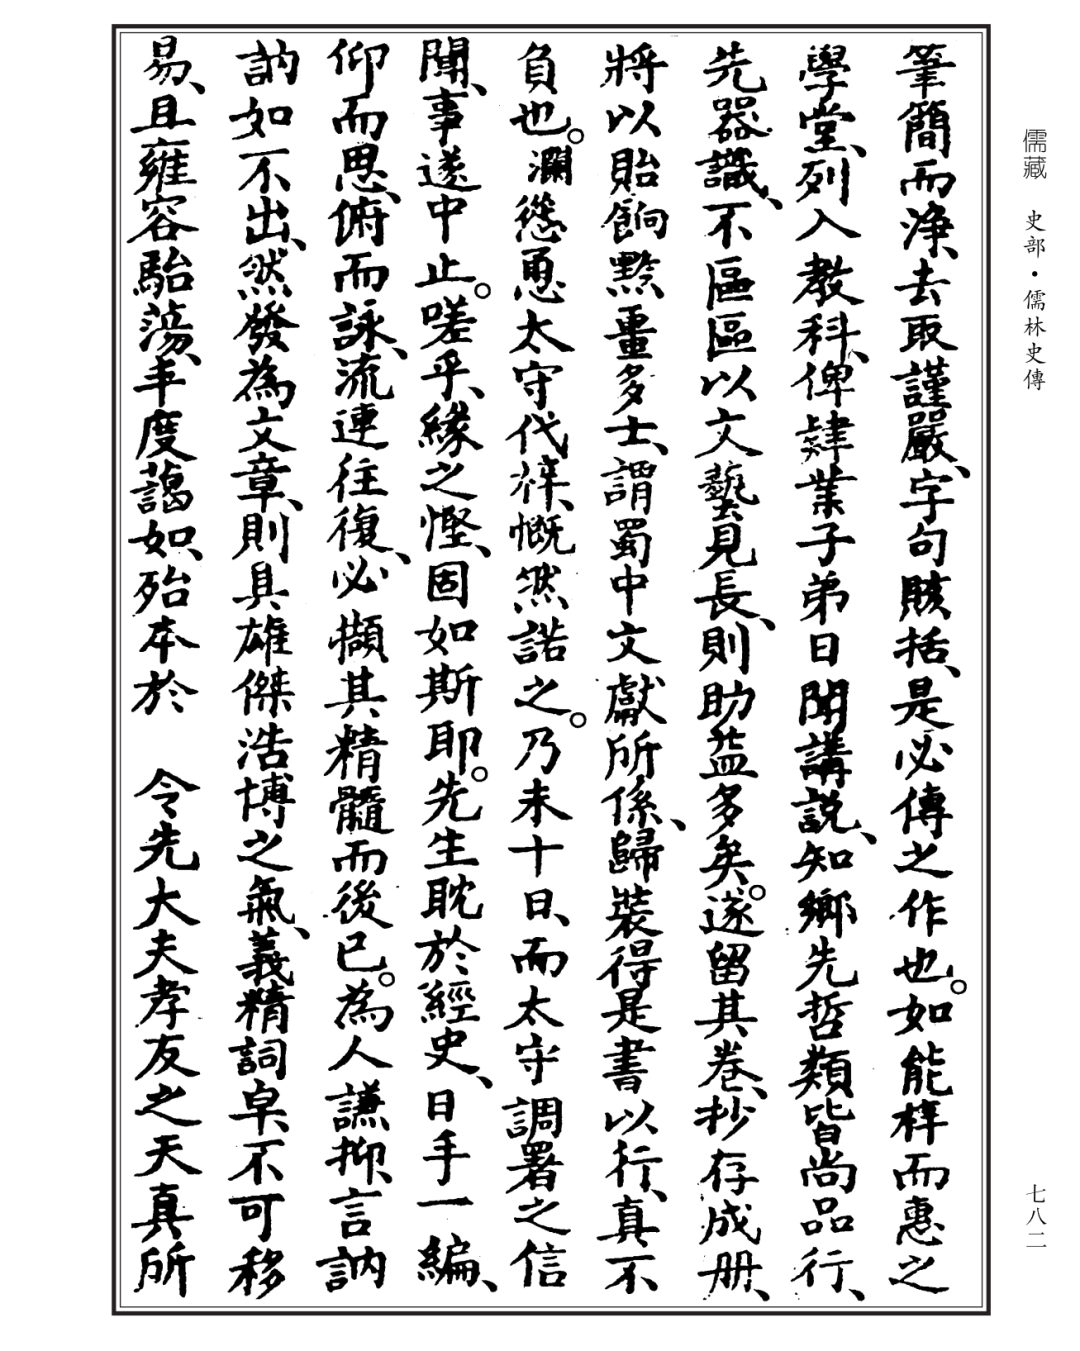 儒藏 史部·儒林史傳
筆簡而淨、去取謹嚴、字句賅括、是必傳之作也。如能梓而惠之
學堂、列入教科、俾肄業子弟日聞講說、知鄉先哲類皆尚品行、
先器識、不區區以文藝見長、則助益多矣。遂留其卷、抄存成册、
將以貽餉黔重多士、謂蜀中文獻所係、歸裝得是書以行、真不
負也。瀾慫恿太守代梓、慨然諾之。乃未十日、而太守調署之信
聞、事遂中止。嗟乎、緣之慳、固如斯耶。先生耽於經史、日手一編、
仰而思、俯而詠、流連往復、必擷其精髓而後已。為人謙抑、言訥
訥如不出、然發為文章、則具雄傑浩博之氣、義精詞卓、不可移
易、且雍容駘蕩、丰度藹如、殆本於 令先大夫孝友之天真所
七八二